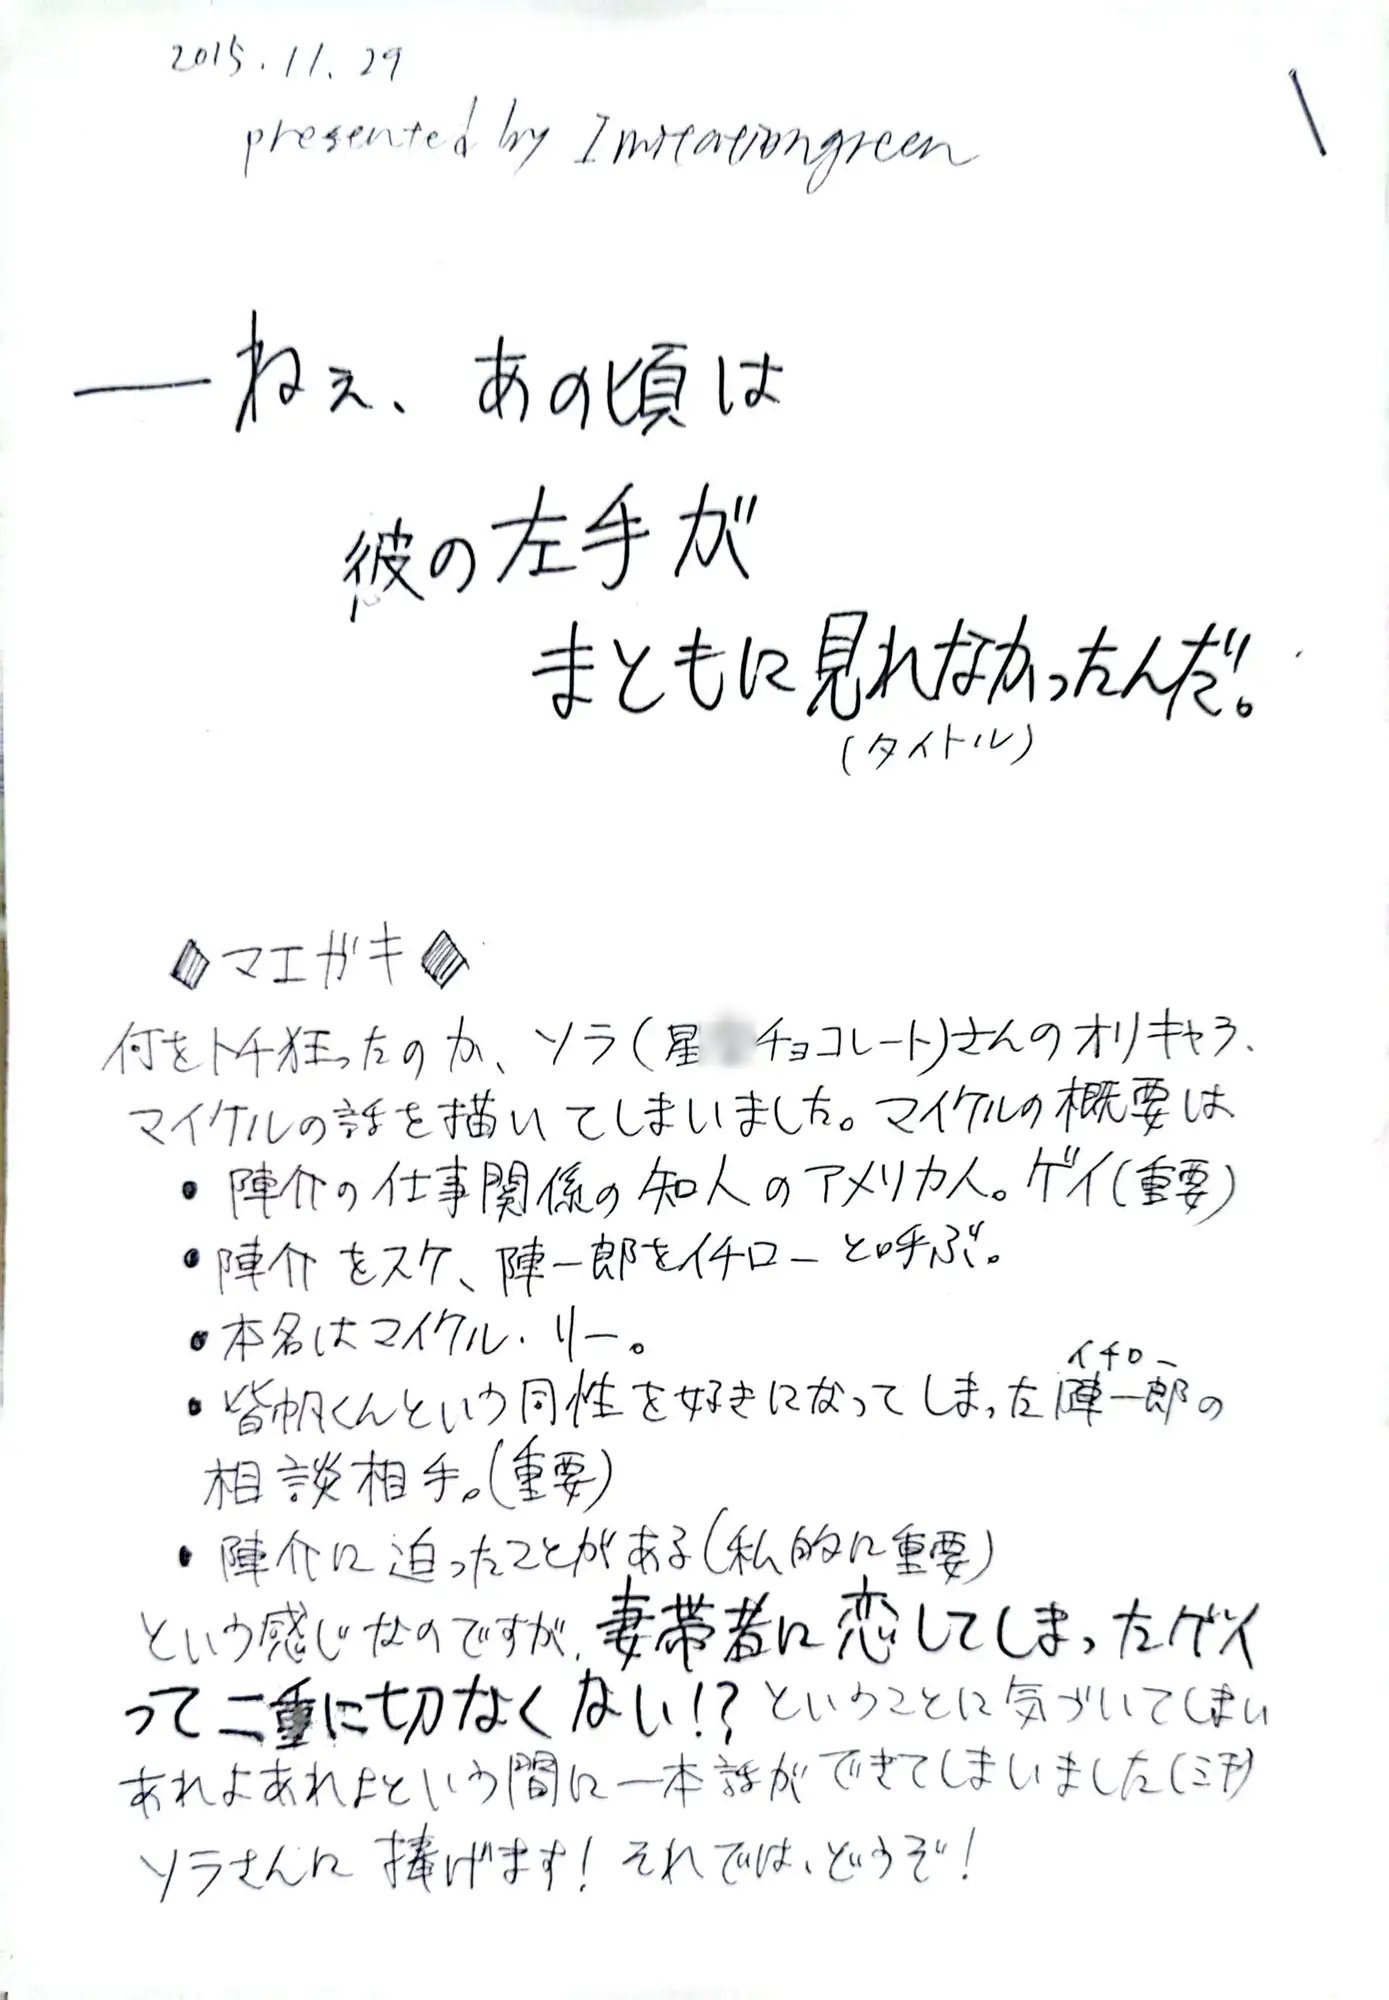 2015.11.29
presented by Imitationgreen
――ねぇ、あの頃は
彼の左手が
まともに見れなかったんだ。
(タイトル)
◆マエガキ◆
何をトチ狂ったのか、ソラ(星 チョコレート)さんのオリキャラ、
マイケルの話を描いてしまいました。マイケルの概要は
・陣介の仕事関係の知人のアメリカ人。ゲイ(重要)
・陣介をスケ、陣一郎をイチローと呼ぶ。
・本名はマイケル・リー。
イチロー
・皆帆くんという同性を好きになってしまった陣一郎の
相談相手。(重要)
・陣介に迫ったことがある(私的に重要)
という感じなのですが、妻帯者に恋してしまったゲイ
って二重に切なくない!?ということに気づいてしまい
あれよあれよという間に一本話ができてしまいました(ミ
ソラさんに捧げます!それでは、どうぞ!